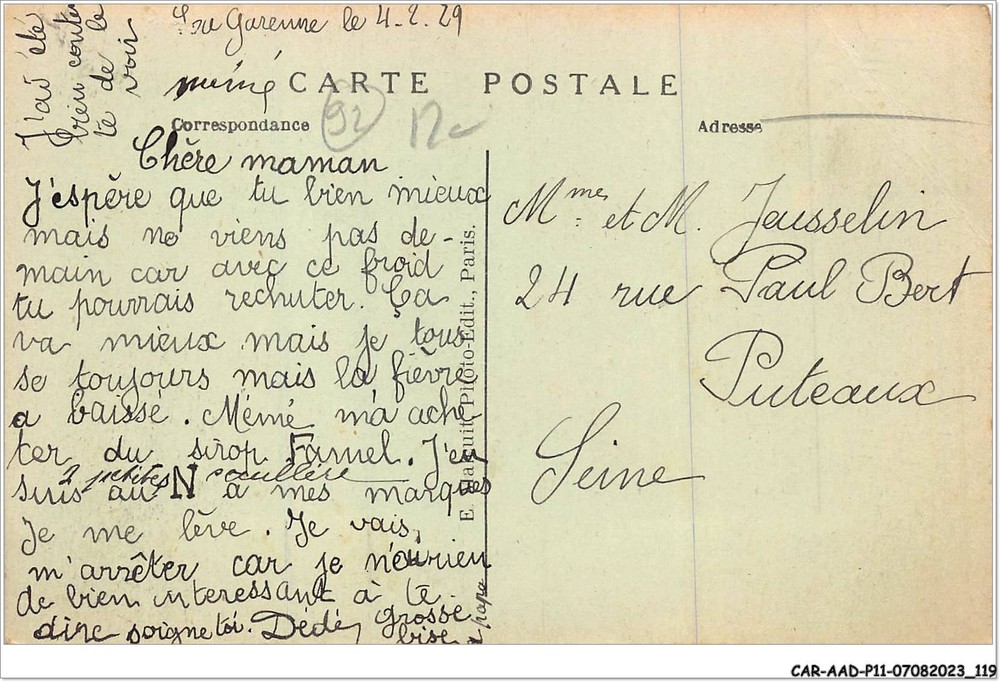 La Garenne le 4-2-29
J'ai été
bien conten
te de le
voir
mémé
CARTE POSTALE
92
12
Correspondance
Adresse
Chère maman
J'espère que tu bien mieux
mais ne viens pas de-
main car avec ce froid
tu pourrais rechuter. Ça
va mieux mais je tous
se toujours mais la fièvre
a baissé. Mémé m'a ache
ter du sirop Famel. J'en
2 petites cuillère
suis au N à mes marques
Je me lève. Je vais
m'arrêter car je n'ai rien
de bien interessant à te
dire soigne toi. Dédé, grosse
bise
à papa
E. Photo-Edit., Paris.
Mme et M. Jausselin
24 rue Paul Bert
Puteaux
Seine
CAR-AAD-P11-07082023_119